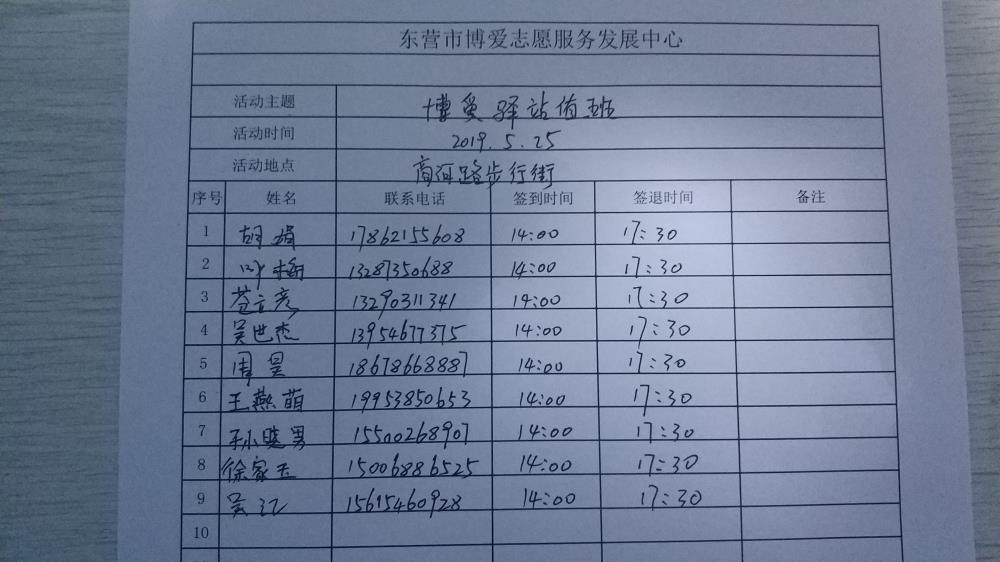 东营市博爱志愿服务发展中心
活动主题 博爱驿站值班
活动时间 2019.5.25
活动地点 商河路步行街
序号 姓名 联系电话 签到时间 签退时间 备注
1 胡娟 17862155608 14:00 17:30
2 叶梅 13287350688 14:00 17:30
3 苍立彦 13290311341 14:00 17:30
4 吴世杰 13954677375 14:00 17:30
5 周昊 18678668887 14:00 17:30
6 王燕萌 19953850653 14:00 17:30
7 孙晓男 15500268907 14:00 17:30
8 徐家玉 15006886525 14:00 17:30
9 吴江 15615460928 14:00 17:30
10